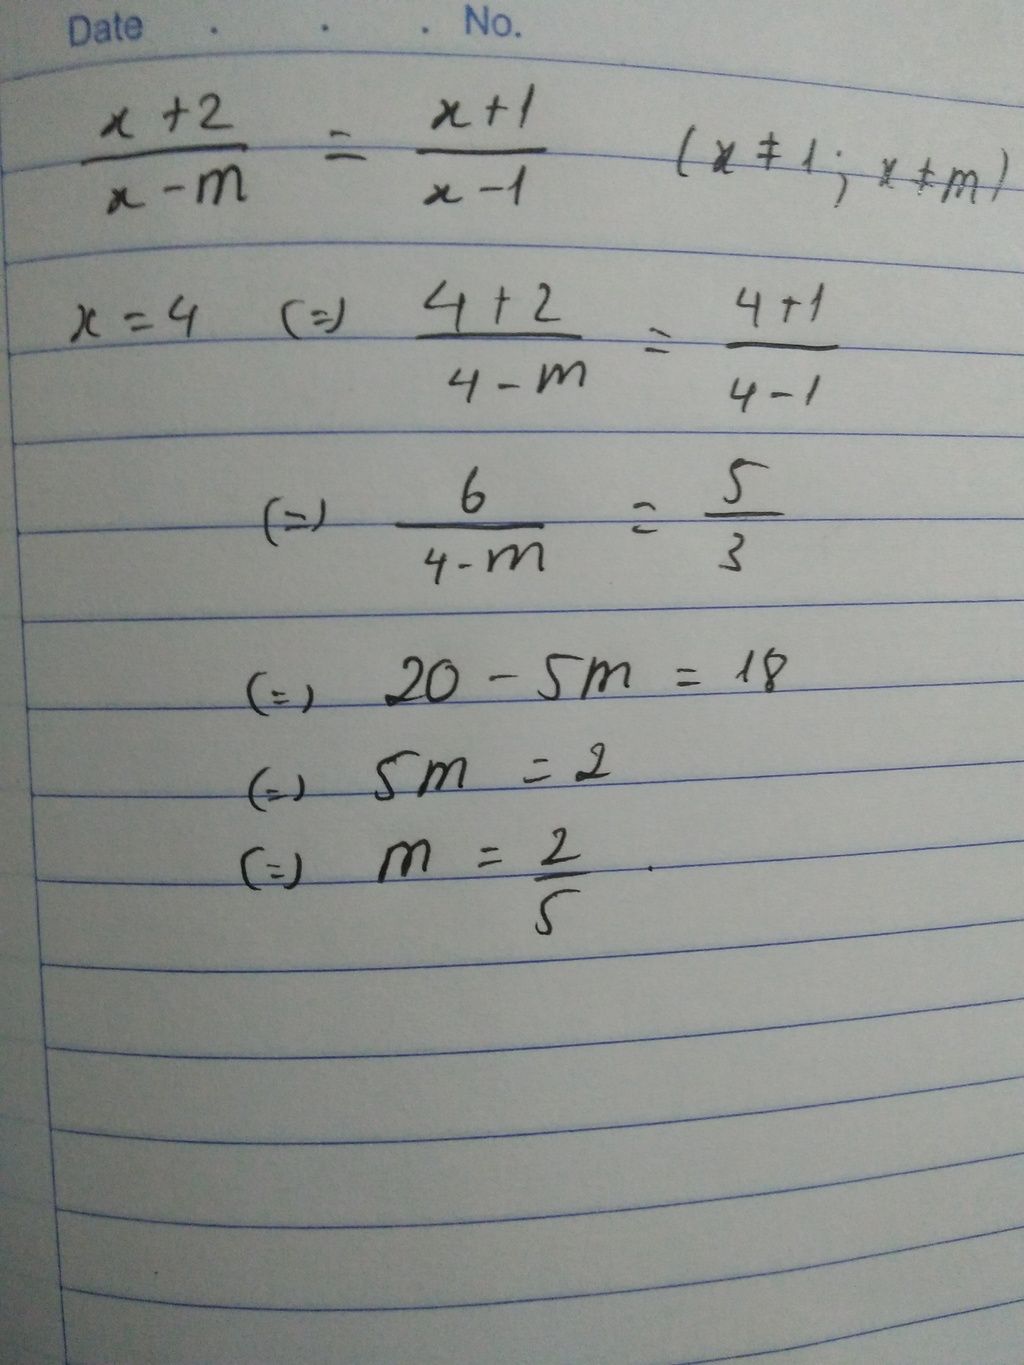 Date . . . No.
x + 2 / x - m = x + 1 / x - 1 (x ≠ 1; x ≠ m)
x = 4 (=) 4 + 2 / 4 - m = 4 + 1 / 4 - 1
(=) 6 / 4 - m = 5 / 3
(=) 20 - 5m = 18
(=) 5m = 2
(=) m = 2 / 5 .